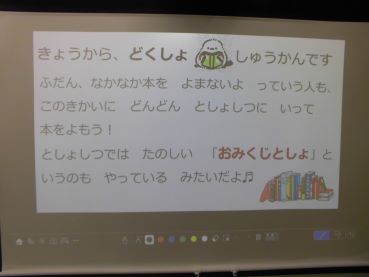 きょうから、どくしょ しゅうかんです
ふだん、なかなか本を よまないよ っていう人も、
このきかいに どんどん としょしつに いって
本をよもう！
としょしつでは たのしい 「おみくじとしょ」と
いうのも やっている みたいだよ♬